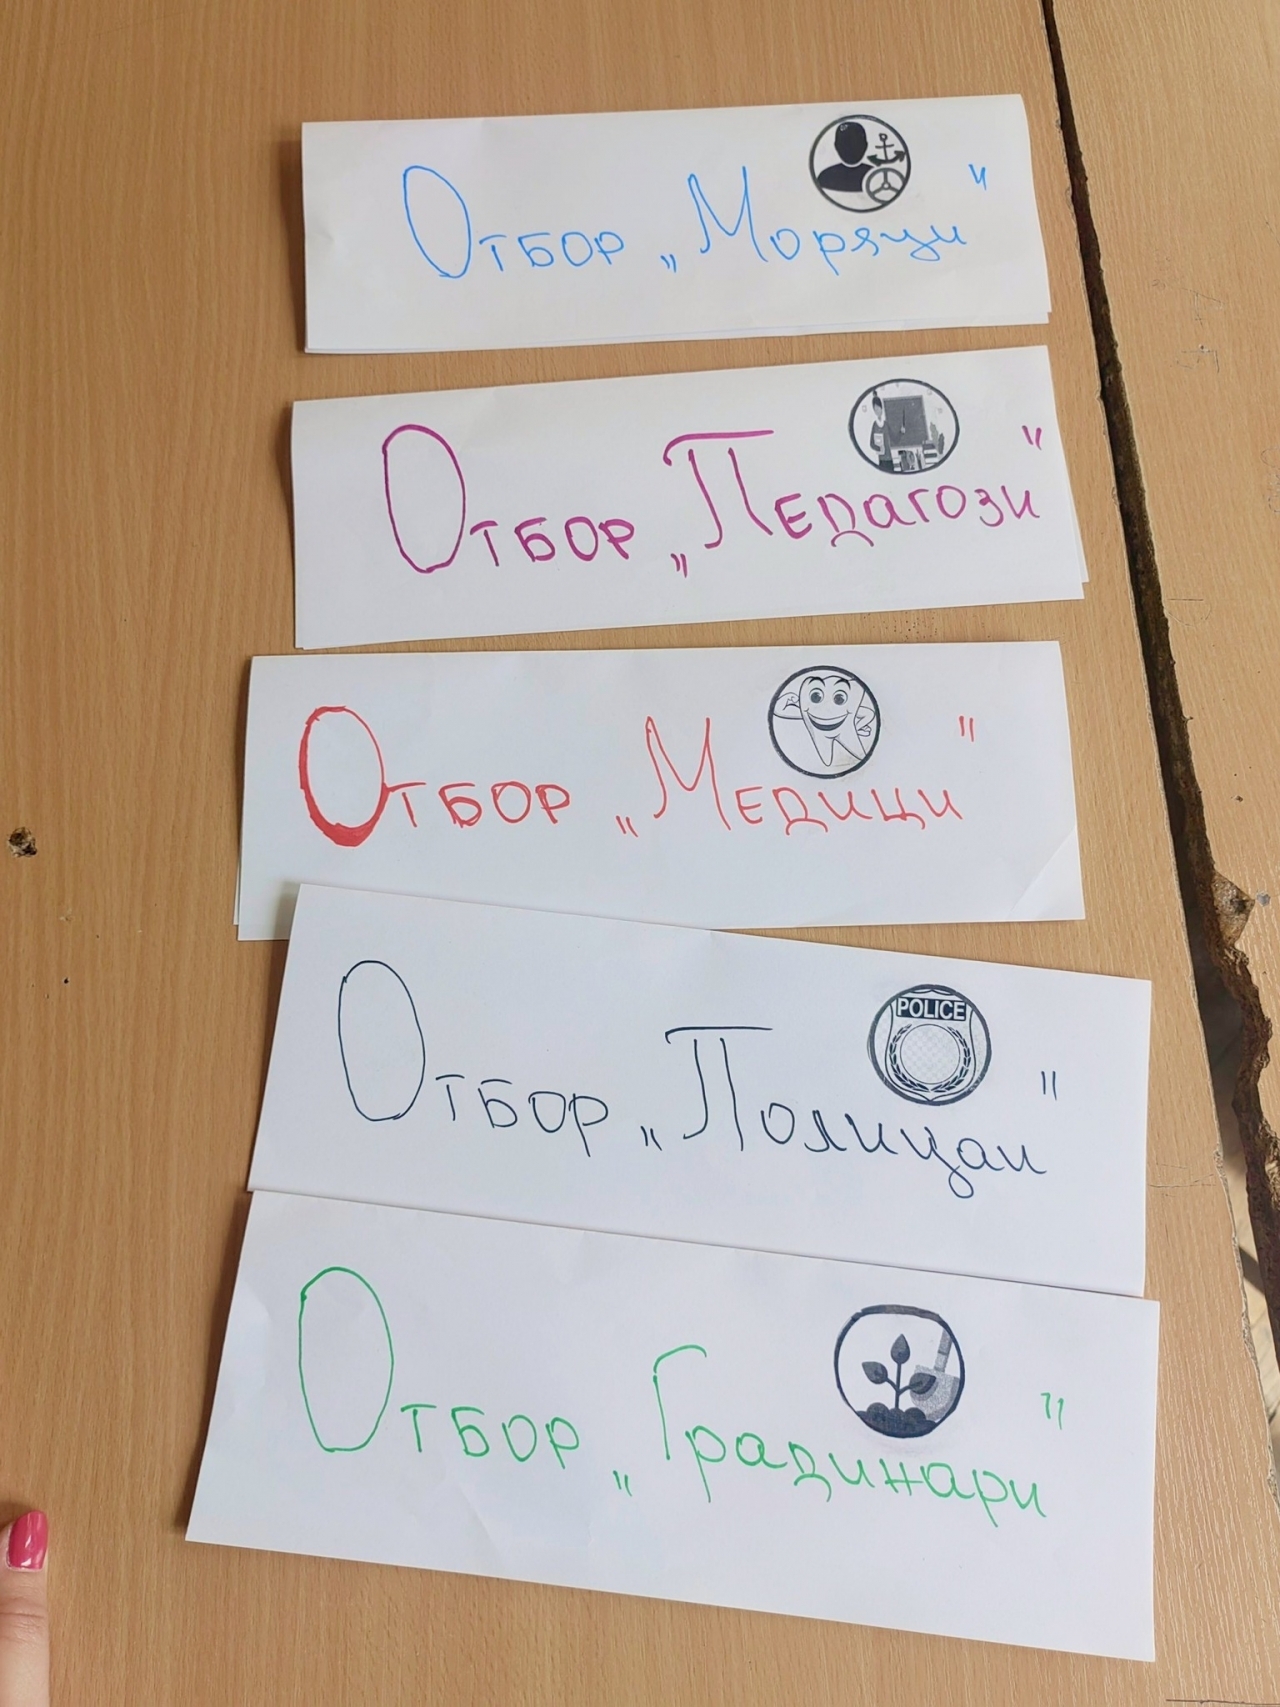 Отбор „Моряци"
Отбор „Педагози"
Отбор „Медици"
POLICE
Отбор „Полицаи"
Отбор „Градинари"